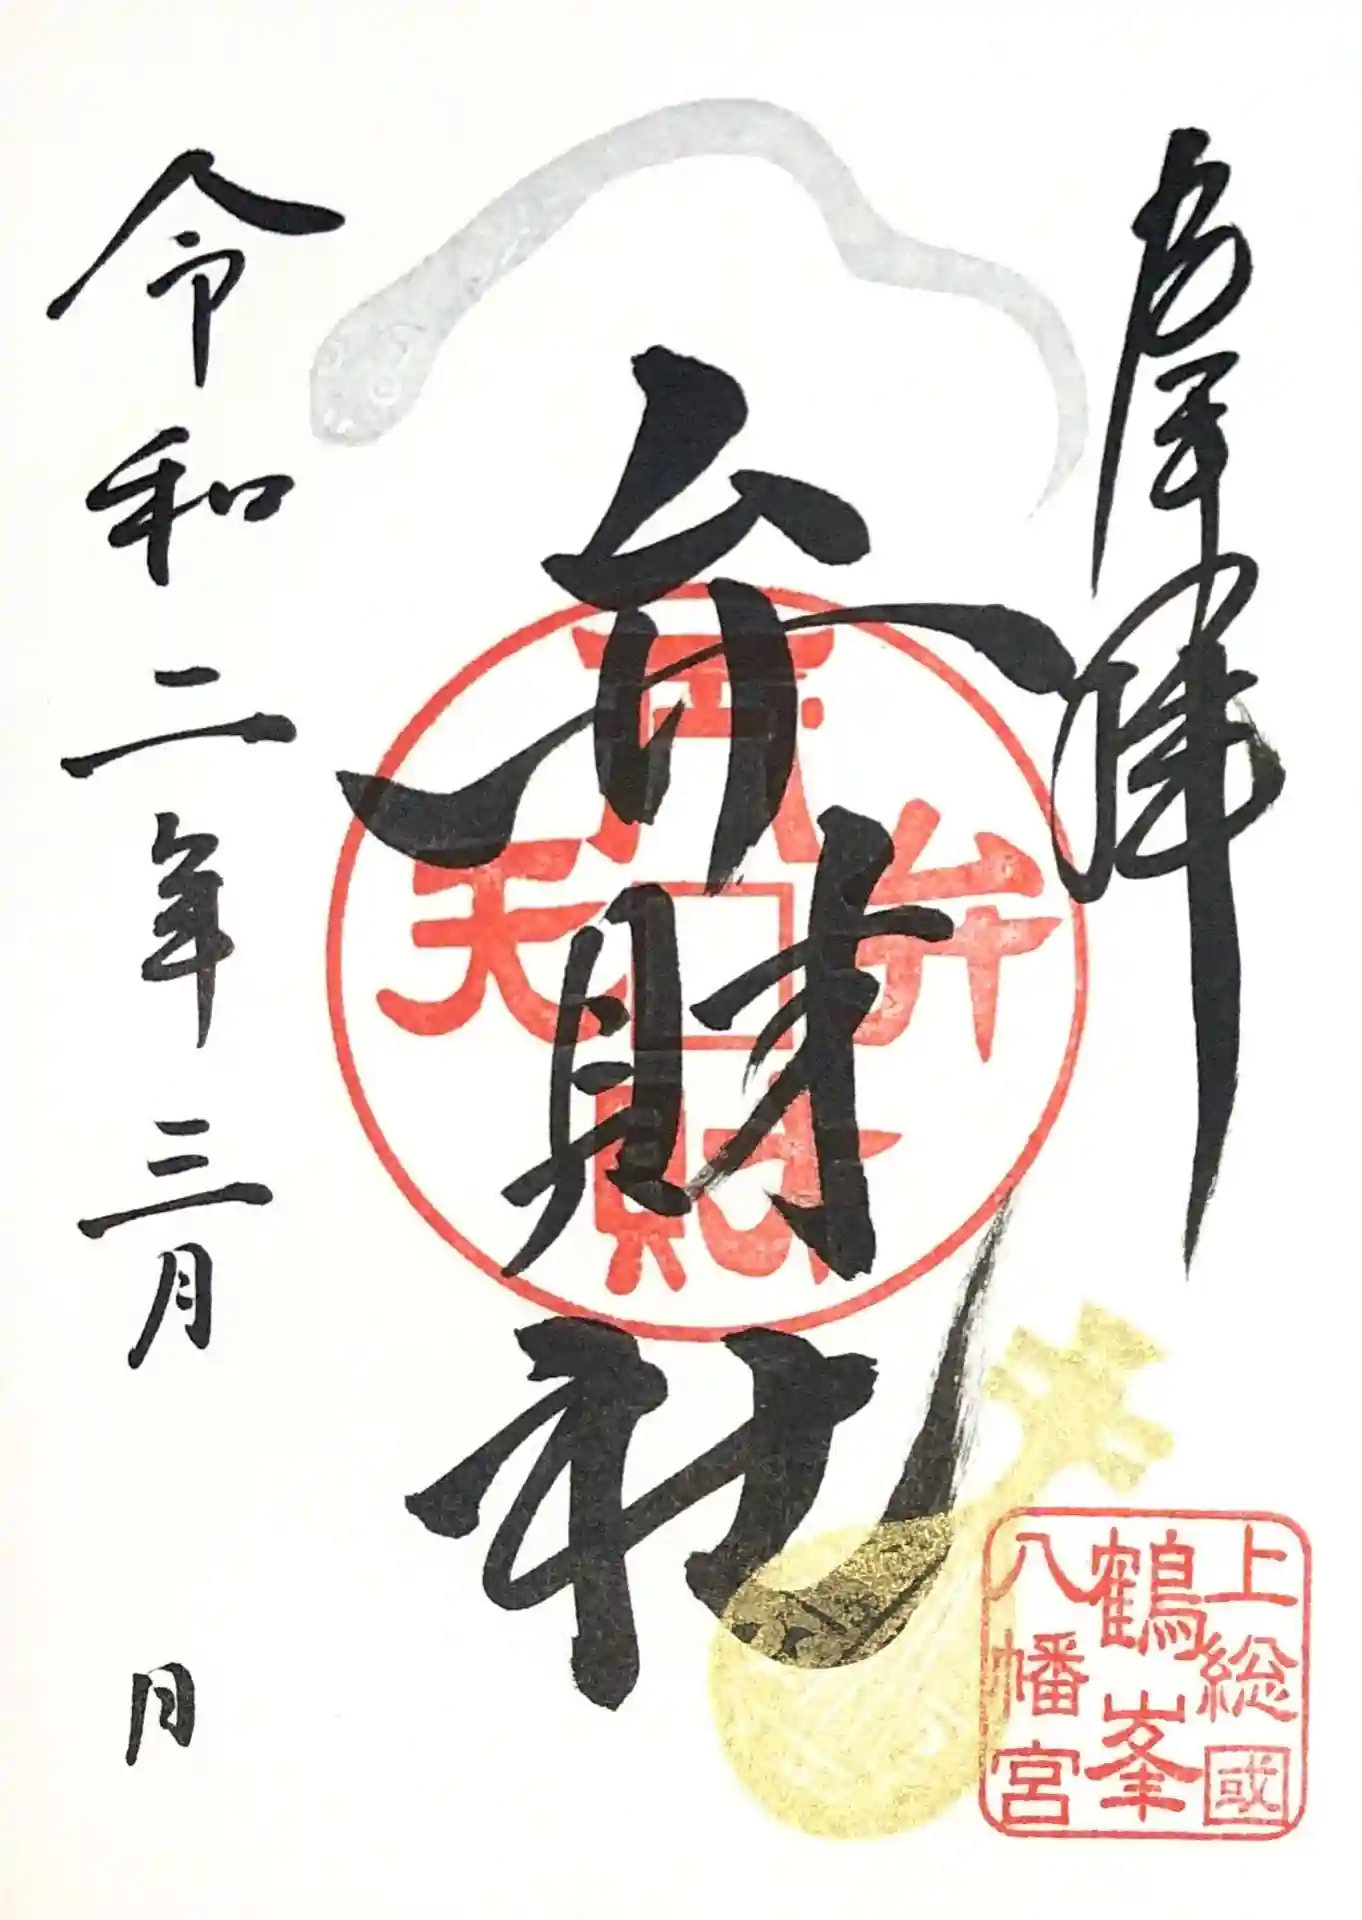 奉拝
弁財社
嚴島
弁
財
天
上総國
鶴峯
八幡宮
令和二年三月 日